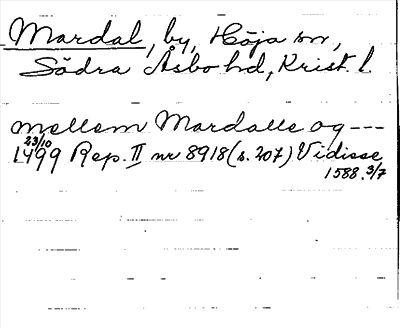 Mardal, by, Höja sn,
Södra Åsbo hd, Krist. l
mellem Mardalle og ---
23/10
1499 Rep. II nr 8918 (s. 207) Vidisse
1588 3/7